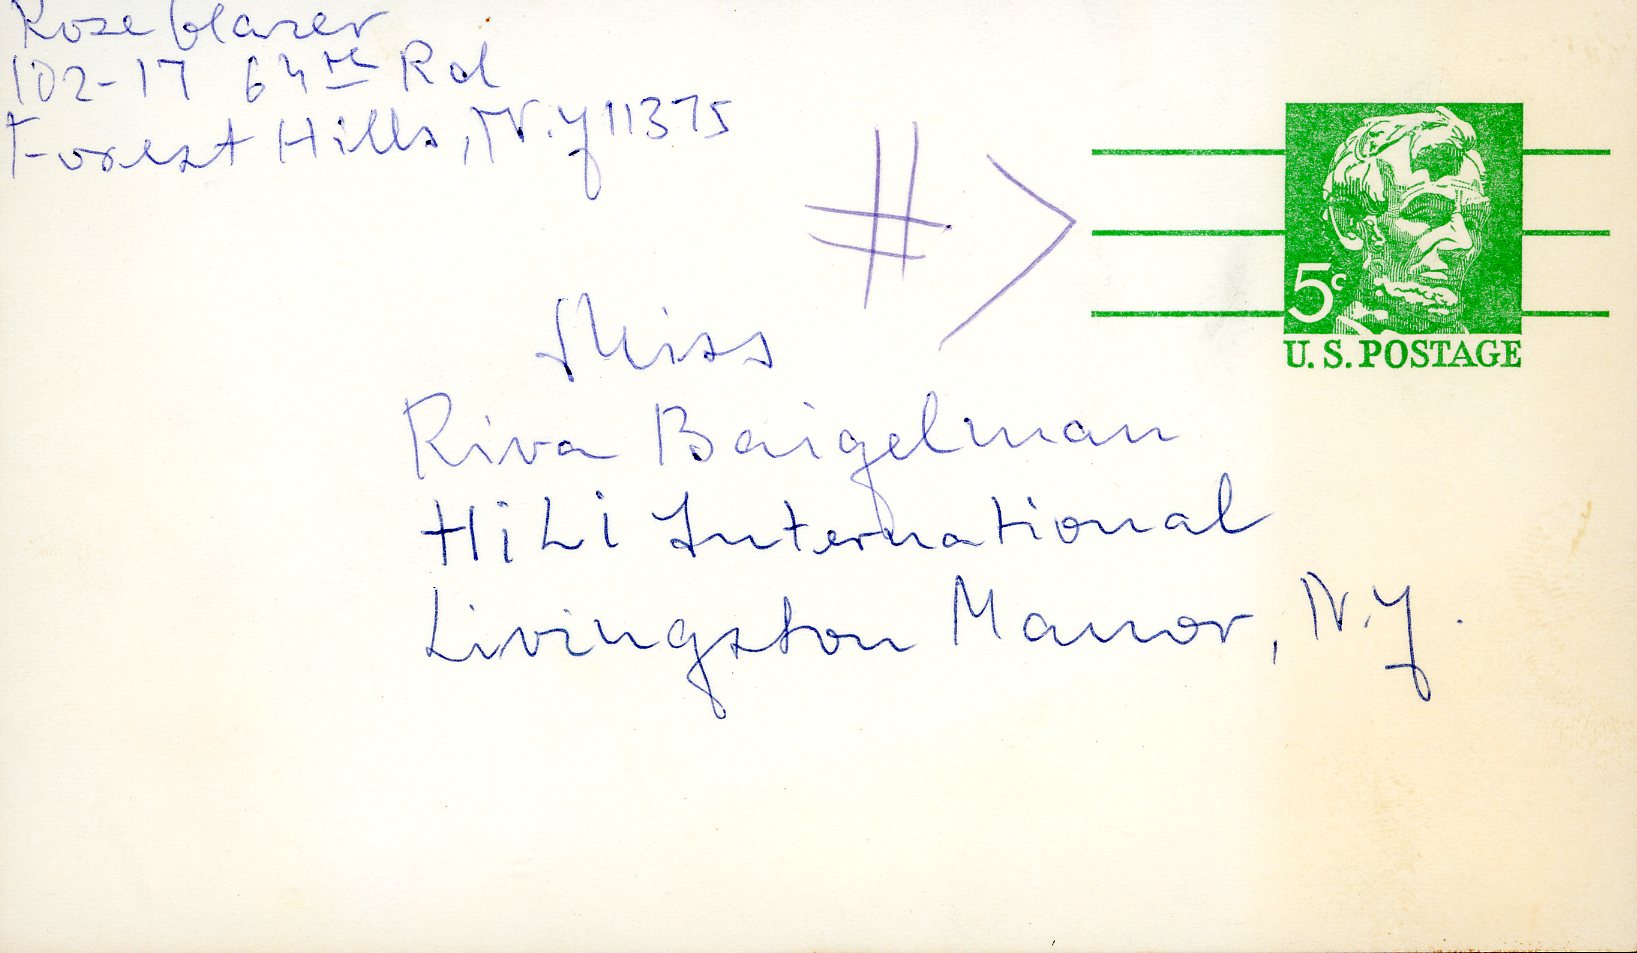 Rose Glazer
102-17 64th Rd
Forest Hills, N.Y 11375
#
5c
U. S. POSTAGE
Miss
Riva Baigelman
HiLi International
Livingston Manor, N.Y.